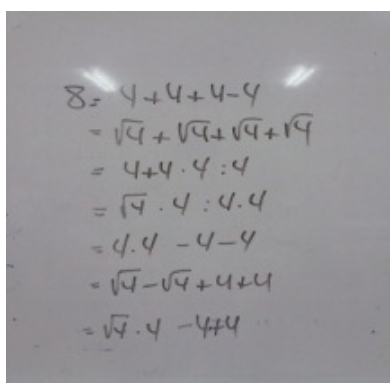 8= 4+4+4-4
= √4 + √4 + √4 + √4
= 4+4 · 4 : 4
= √4 · 4 : 4 · 4
= 4.4 - 4 - 4
= √4 - √4 + 4 + 4
= √4 · 4 - 4+4